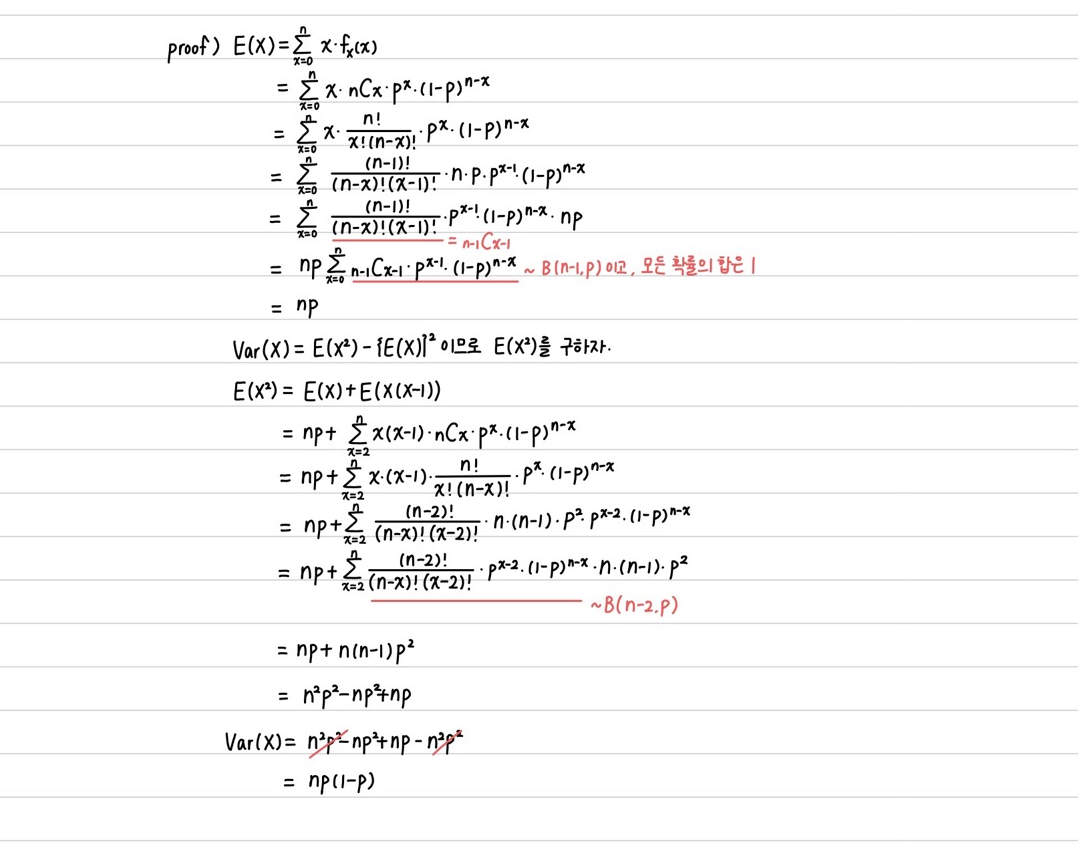 proof) E(X)=Σ_{x=0}^{n} x·f_x(x)
= Σ_{x=0}^{n} x·nCx·p^x·(1-p)^{n-x}
= Σ_{x=0}^{n} x·n!/(x!(n-x)!)·p^x·(1-p)^{n-x}
= Σ_{x=0}^{n} (n-1)!/((n-x)!(x-1)!)·n·p·p^{x-1}·(1-p)^{n-x}
= Σ_{x=0}^{n} (n-1)!/((n-x)!(x-1)!)·p^{x-1}·(1-p)^{n-x}·np
= n-1Cx-1
= np Σ_{x=0}^{n} n-1Cx-1·p^{x-1}·(1-p)^{n-x} ~ B(n-1,p) 이고, 모든 확률의 합은 1
= np
Var(X) = E(X²) - {E(X)}² 이므로 E(X²)를 구하자.
E(X²) = E(X)+E(X(X-1))
= np+ Σ_{x=2}^{n} x(x-1)·nCx·p^x·(1-p)^{n-x}
= np+ Σ_{x=2}^{n} x·(x-1)·n!/(x!(n-x)!)·p^x·(1-p)^{n-x}
= np+ Σ_{x=2}^{n} (n-2)!/((n-x)!(x-2)!)·n·(n-1)·p²·p^{x-2}·(1-p)^{n-x}
= np+ Σ_{x=2}^{n} (n-2)!/((n-x)!(x-2)!)·p^{x-2}·(1-p)^{n-x}·n·(n-1)·p²
~B(n-2,p)
= np+n(n-1)p²
= n²p²-np²+np
Var(X)= n²p²-np²+np-n²p²
= np(1-p)